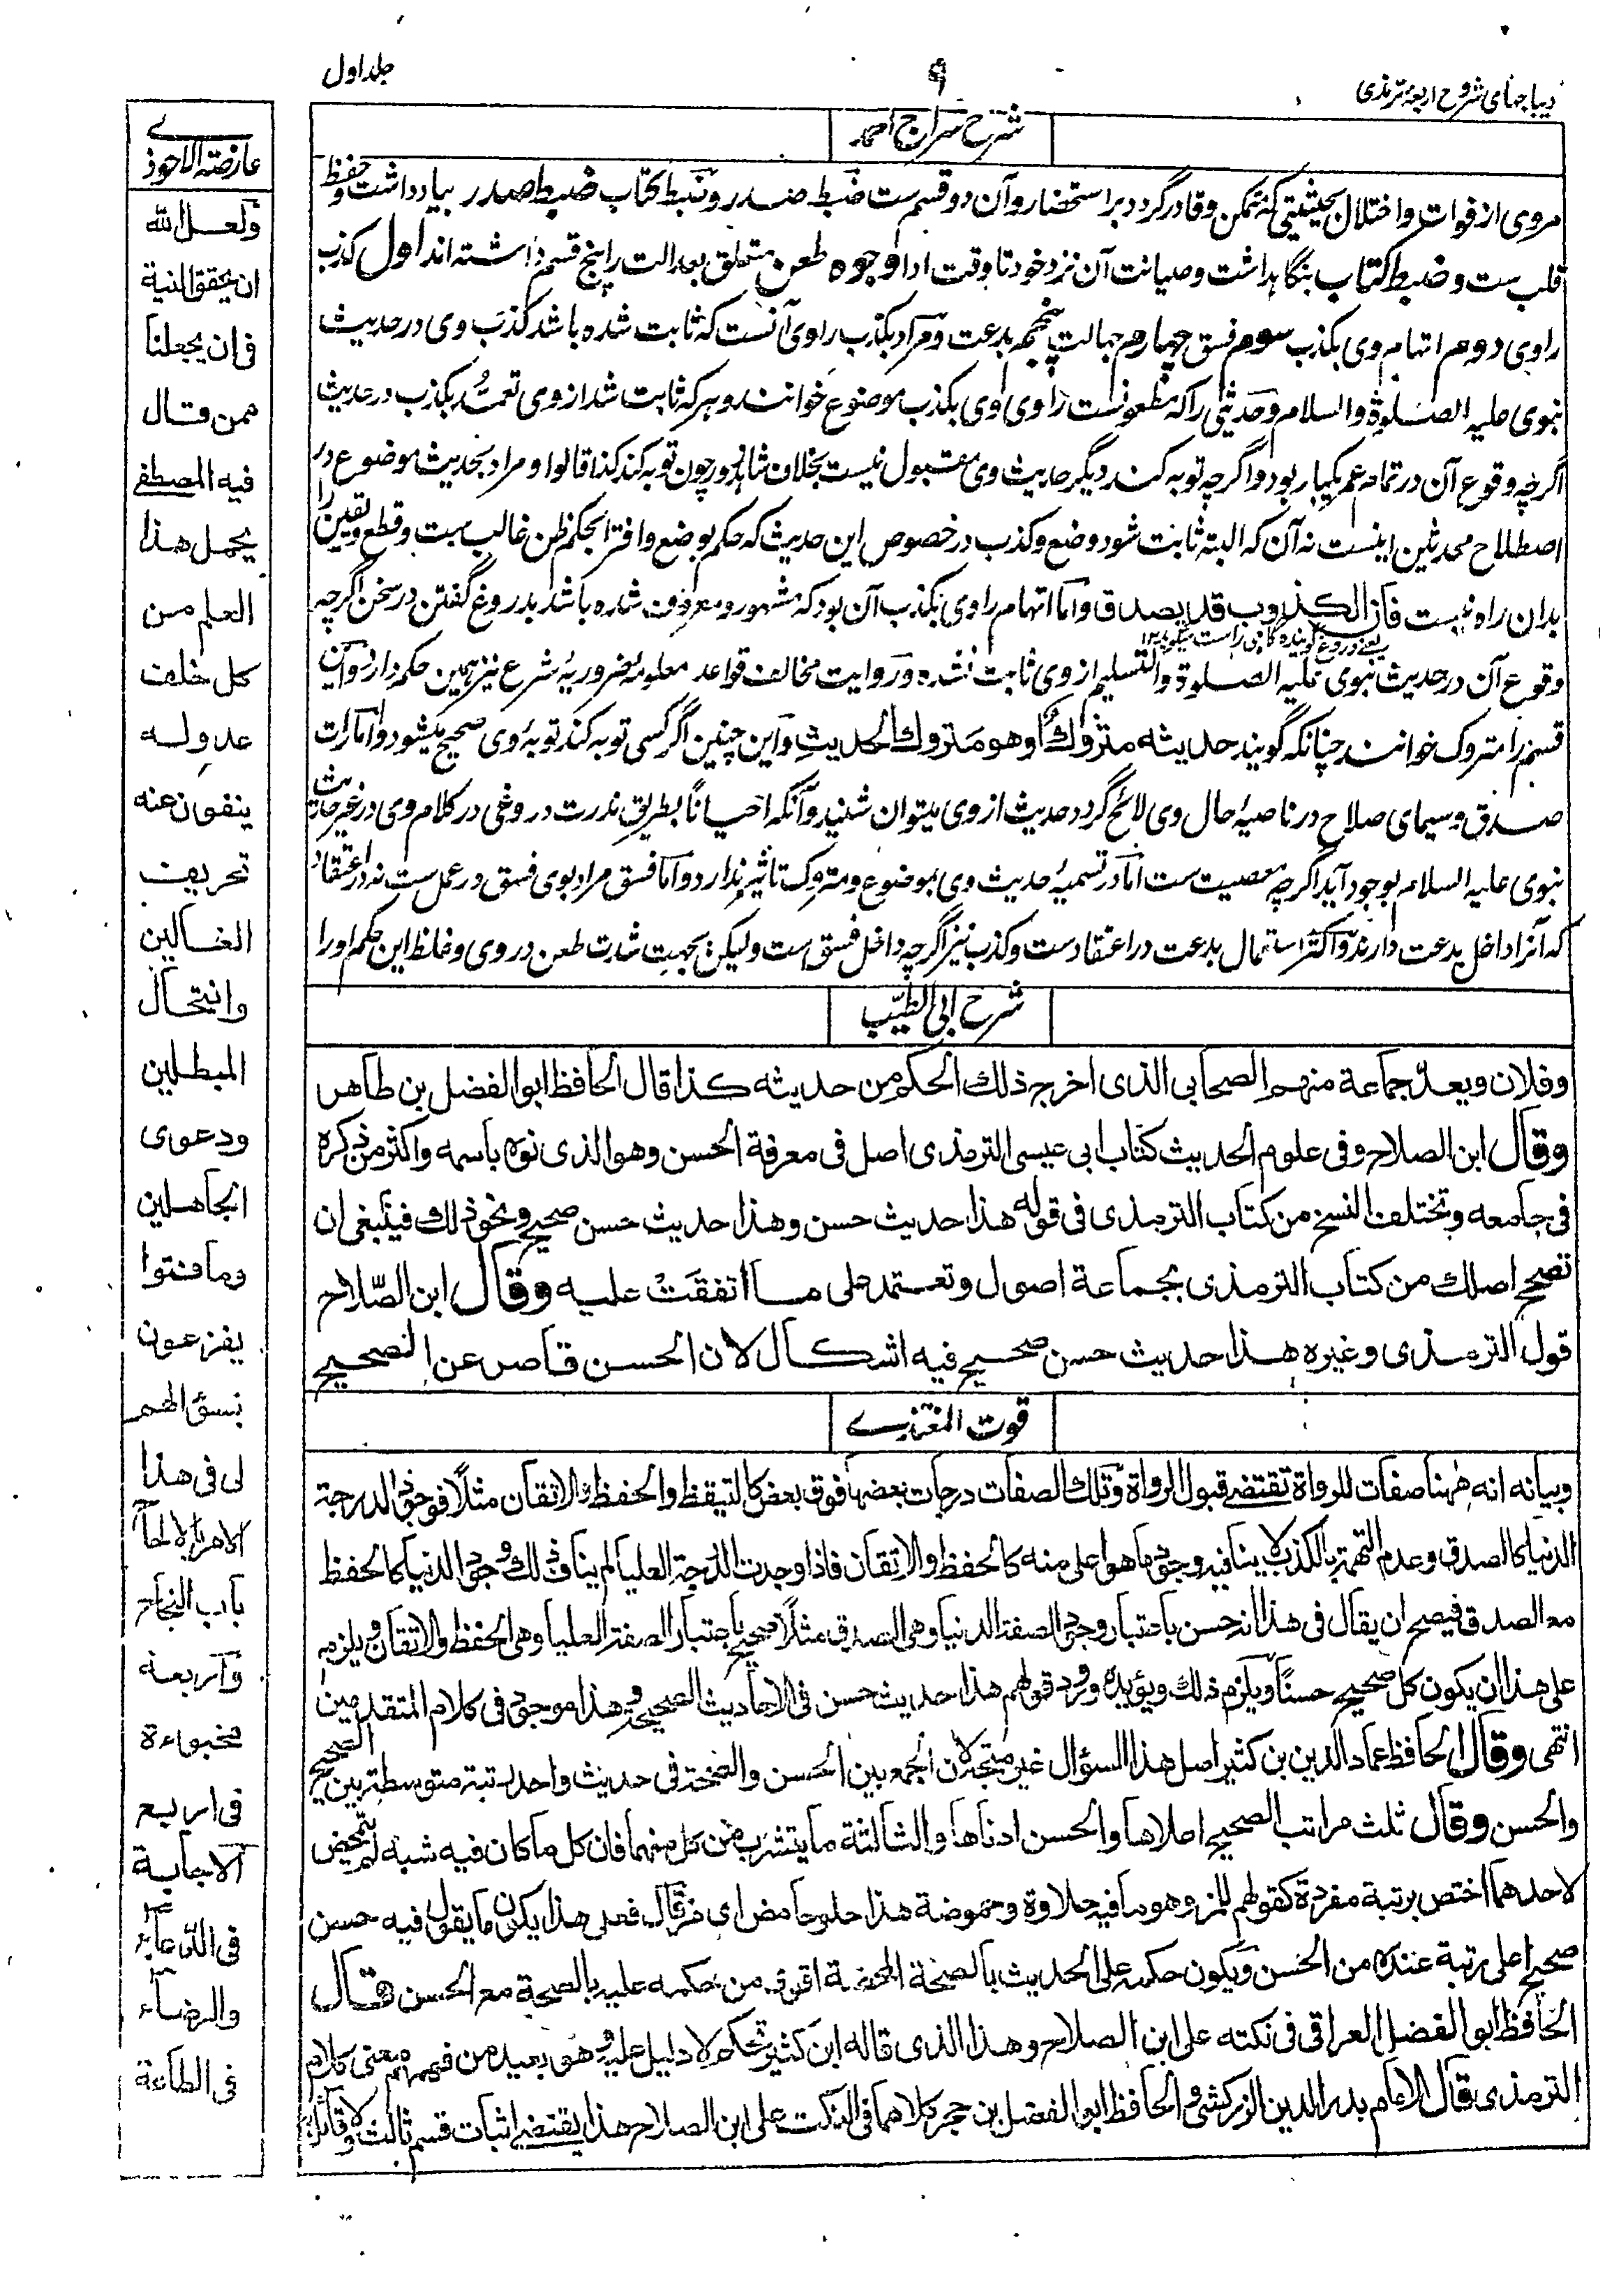 دیباجهای شروح اربعۀ ترمذی
۹
جلد اول
شرح سراج احمد
مروی از فوات و اختلال بحیثیتی که متمکن و قادر گردد بر استحضار و آن دو قسم ست ضبط صدر و ضبط کتاب ضبط صدر بیادداشت و حفظ
قلب ست و ضبط کتاب بنگاهداشت و صیانت آن نزد خود تا وقت ادا و وجوه طعن متعلق بعدالت را پنج قسم داشته اند اول کذب
راوی دوم اتهام وی بکذب سوم فسق چهارم جهالت پنجم بدعت و مراد بکذب راوی آنست که ثابت شده باشد کذب وی در حدیث
نبوی علیه الصلوة والسلام و حدیثی را که مطعونست راوی وی بکذب موضوع خوانند و هر که ثابت شد از وی تعمد بکذب در حدیث
اگرچه وقوع آن در تمام عمر یکبار بود و اگرچه توبه کند دیگر حدیث وی مقبول نیست بخلاف شاهد زور چون توبه کند کذا قالوا و مراد بحدیث موضوع در
اصطلاح محدثین اینست نه آن که البته ثابت شود وضع و کذب در خصوص این حدیث که حکم بوضع و افترا بحکم ظن غالب ست و قطع و یقین را
بدان راه نیست فان الکذوب قد یصدق و اما اتهام راوی بکذب آن بود که مشهور و معروف شده باشد بدروغ گفتن در سخن اگرچه
یعنے دروغ گوینده گاهی راست میگوید ۱۲
وقوع آن در حدیث نبوی علیه الصلوة والتسلیم از وی ثابت نشده و روایت مخالف قواعد معلومه ضروریۀ شرع نیز همین حکم دارد و این
قسم را متروک خوانند چنانکه گویند حدیثه متروك و هو متروك الحدیث و این چنین اگر کسی توبه کند توبۀ وی صحیح میشود و امارات
صدق و سیمای صلاح در ناصیۀ حال وی لائح گردد حدیث از وی میتوان شنید و آنکه احیاناً بطریق ندرت دروغی در کلام وی در غیر حدیث
نبوی علیه السلام بوجود آید اگرچه معصیت ست اما در تسمیۀ حدیث وی بموضوع و متروک تاثیر ندارد و اما فسق مراد بوی فسق در عمل ست نه در اعتقاد
که آنرا داخل بدعت دارند و اکثر استعمال بدعت در اعتقادست و کذب نیز اگرچه داخل فسق ست و لیکن بجهت شدت طعن در وی و غلظ این حکم او را
شرح ابی الطیّب
وفلان ويعدّ جماعة منهم الصحابى الذى اخرج ذلك الحكم من حديثه كذا قال الحافظ ابوالفضل بن طاهر
وقال ابن الصلاح وفى علوم الحديث كتاب ابى عيسى الترمذى اصل فى معرفة الحسن وهو الذى نوه باسمه واكثر من ذكره
فى جامعه وتختلف النسخ من كتاب الترمذى فى قوله هذا حديث حسن وهذا حديث حسن صحيح ونحو ذلك فينبغى ان
تصحح اصلك من كتاب الترمذى بجماعة اصول وتعتمد على ما اتفقت عليه وقال ابن الصّلاح
قول الترمذى وغيره هذا حديث حسن صحيح فيه اشكال لان الحسن قاصر عن الصحيح
قوت المغتذے
وبيانه انه ههنا صفات للرواة تقتضے قبول الرواة وتلك الصفات درجات بعضها فوق بعض كالتيقظ والحفظ والاتقان مثلاً فوجود الدرجة
الدنيا كالصدق وعدم التهمة بالكذب لا ينافيه وجود ما هو اعلى منه كالحفظ والاتقان فاذا وجدت الدرجة العليا لم يناف ذلك وجود الدنيا كالحفظ
مع الصدق فيصح ان يقال فى هذا انه حسن باعتبار وجود الصفة الدنيا وهى الصدق مثلاً صحيح باعتبار الصفة العليا وهى الحفظ والاتقان ويلزم
على هذا ان يكون كل صحيح حسناً ويلزم ذلك ويؤيده ورود قولهم هذا حديث حسن فى الاحاديث الصحيحة وهذا موجود فى كلام المتقدمين
انتهى وقال الحافظ عماد الدين بن كثير اصل هذا السؤال غير متجه لان الجمع بين الحسن والصحة فى حديث واحد رتبة متوسطة بين الصحيح
والحسن وقال ثلث مراتب الصحيح اعلاها والحسن ادناها والثالثة ما يتشرب من كل منهما فان كل ما كان فيه شبه لم يتمحض
لاحدهما اختص برتبة مفردة كقولهم للمز وهو ما فيه حلاوة وحموضة هذا حلو حامض اى مز قال فعلى هذا يكون ما يقول فيه حسن
صحيح اعلى رتبة عنده من الحسن ويكون حكمه على الحديث بالصحة المحضة اقوى من حكمه عليه بالصحة مع الحسن قال
الحافظ ابوالفضل العراقى فى نكته على ابن الصلاح وهذا الذى قاله ابن كثير تحكم لا دليل عليه وهو بعيد من فهمهم معنى كلام
الترمذى قال الامام بدر الدين الزركشى والحافظ ابوالفضل بن حجر كلاهما فى النكت على ابن الصلاح هذا يقتضے اثبات قسم ثالث ولا قائل به
عارضة الاحوذے
ولعل الله
ان يحقق النية
فى ان يجعلنا
ممن قال
فيه المصطفى
يحمل هذا
العلم من
كل خلف
عدوله
ينفون عنه
تحريف
الغالين
وانتحال
المبطلين
ودعوى
الجاهلين
وما فتئوا
يفزعون
بسؤالهم
لى فى هذا
باب النجاح
واربعة
مخبوءة
فى اربع
الاجابة
فى الدعاء
والرضاء
فى الطاعة